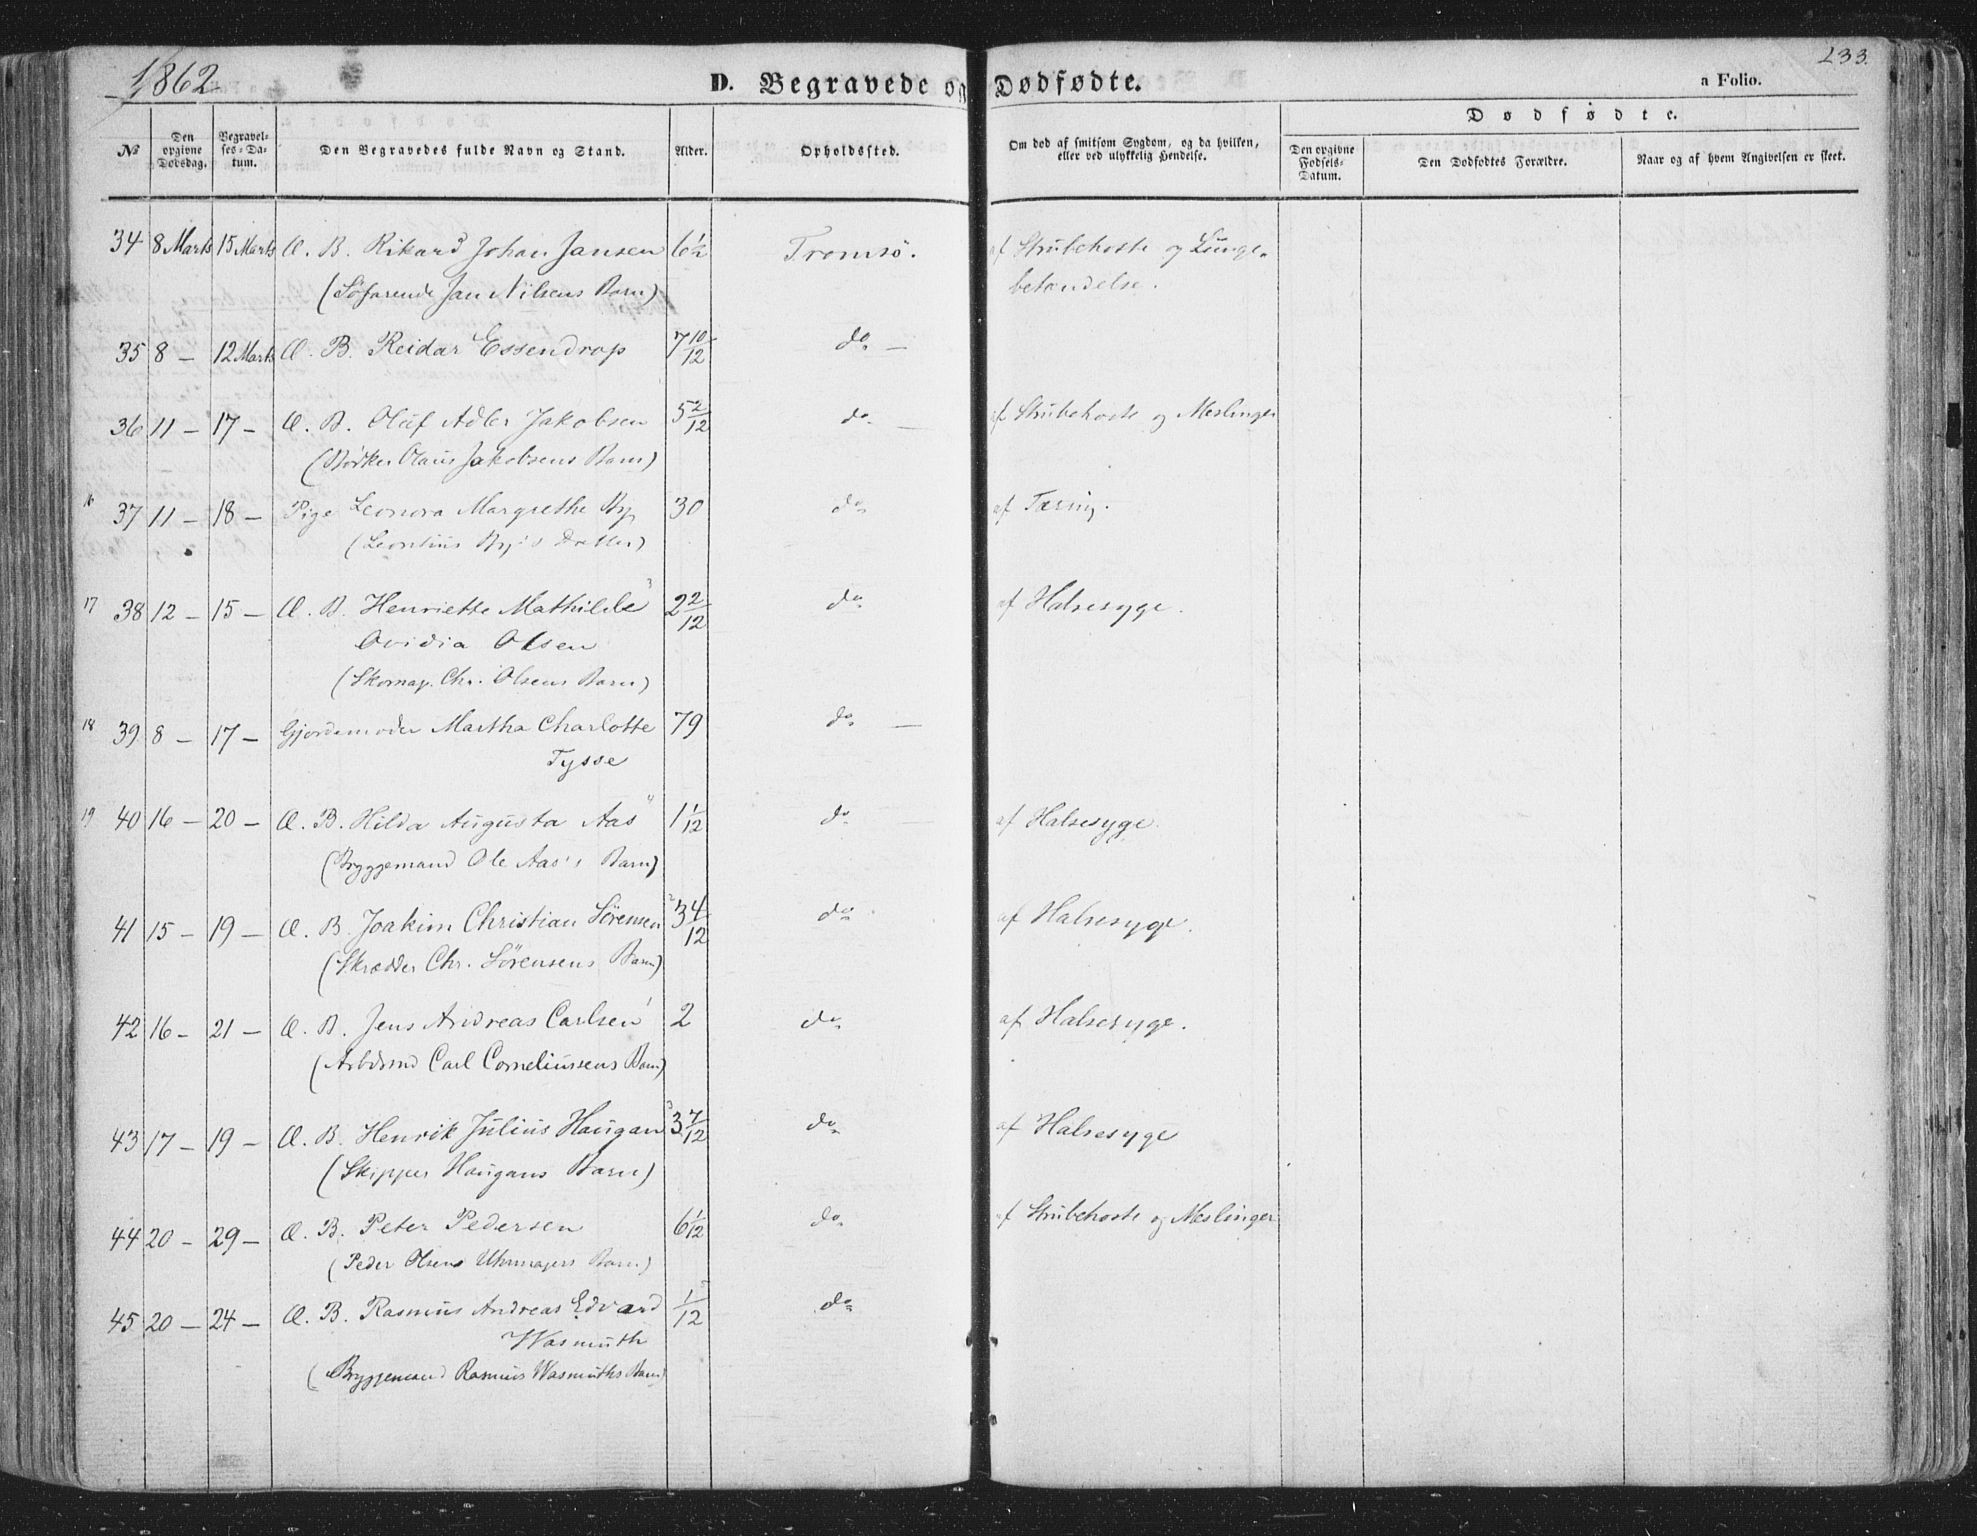 1862
D. Begravede og Dødfødte.
233.
a Folio.
Dødfødte.
No
Den opgivne Dødsdag.
Begravelses-Datum.
Den Begravedes fulde Navn og Stand.
Alder.
Opholdssted.
Om død af smitsom Sygdom, og da hvilken, eller ved ulykkelig Hendelse.
Den opgivne Fødsels-Datum.
Den Dødfødtes Forældre.
Naar og af hvem Angivelsen er skeet.
34 8 Marts 15 Marts Æ. B. Rikard Johan Jansen 6½ Tromsö. af Strubehoste og Lunge-
(Söfarende Jan Nilsens Barn) betændelse.
35 8 — 12 Marts Æ. B. Reidar Essendrop 7 10/12 do —
36 11 — 17 — Æ. B. Oluf Adler Jakobsen 5 2/12 do — af Strubehoste og Meslinger
(Bödker Olaus Jakobsens Barn)
16 37 11 — 18 — Pige Leonora Margrethe By 30 do af Tæring.
(Leontius By's Datter)
17 38 12 — 15 — Æ. B. Henriette Mathilde 3 2 2/12 do af Halsesyge.
Ovidia Olsen
(Skomag. Chr. Olsens Barn)
18 39 8 — 17 — Gjordemoder Martha Charlotte 79 do —
Tysse
19 40 16 — 20 — Æ. B. Hilda Augusta Aas 1 1/12 do — af Halsesyge.
(Bryggemand Ole Aas's Barn)
41 15 — 19 — Æ. B. Joakim Christian Sörensen 3 4/12 do af Halsesyge.
(Skrædder Chr. Sörensens Barn)
42 16 — 21 — Æ. B. Jens Andreas Carlsen 2 do af Halsesyge.
(Arbdsmd Carl Corneliussens Barn)
43 17 — 19 — Æ. B. Henrik Julius Haugan 3 7/12 do af Halsesyge
(Skipper Haugans Barn)
44 20 — 29 — Æ. B. Peter Pedersen 6 1/12 do af Strubehoste og Meslinger
(Peder Olsens Uhrmagers Barn)
45 20 — 24 — Æ. B. Rasmus Andreas Edvard 1/12 do
Wasmuth
(Bryggemand Rasmus Wasmuths Barn)